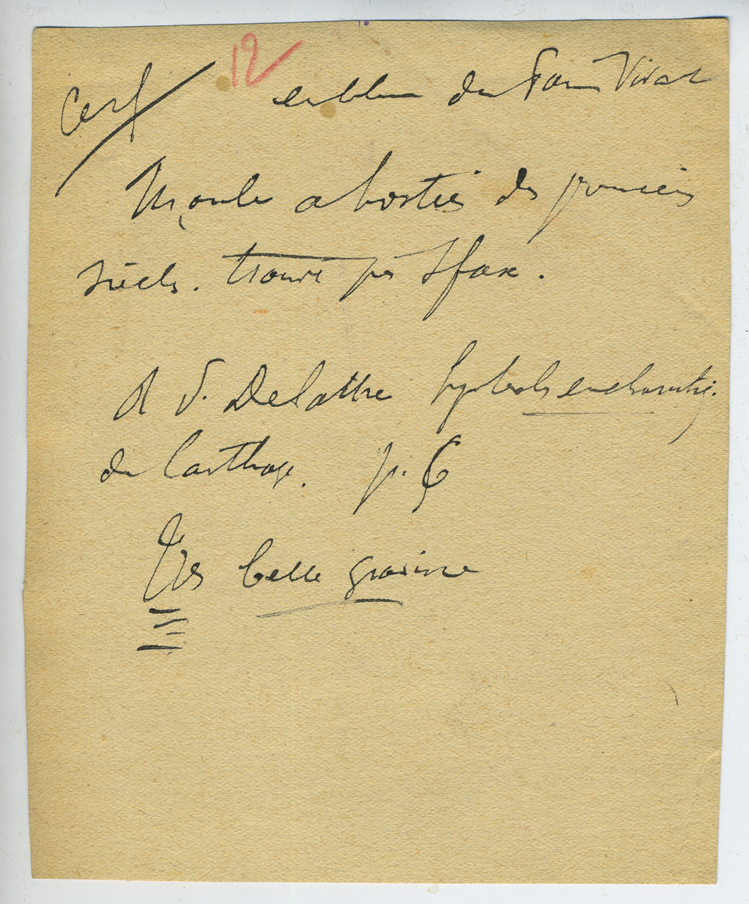 Cerf 12 emblème du Pain Vivant
Moule a hosties des premiers
siècles. trouvé près Sfax.
R P. Delattre Symboles eucharistiq.
de Carthage. p. 6
Très belle gravure